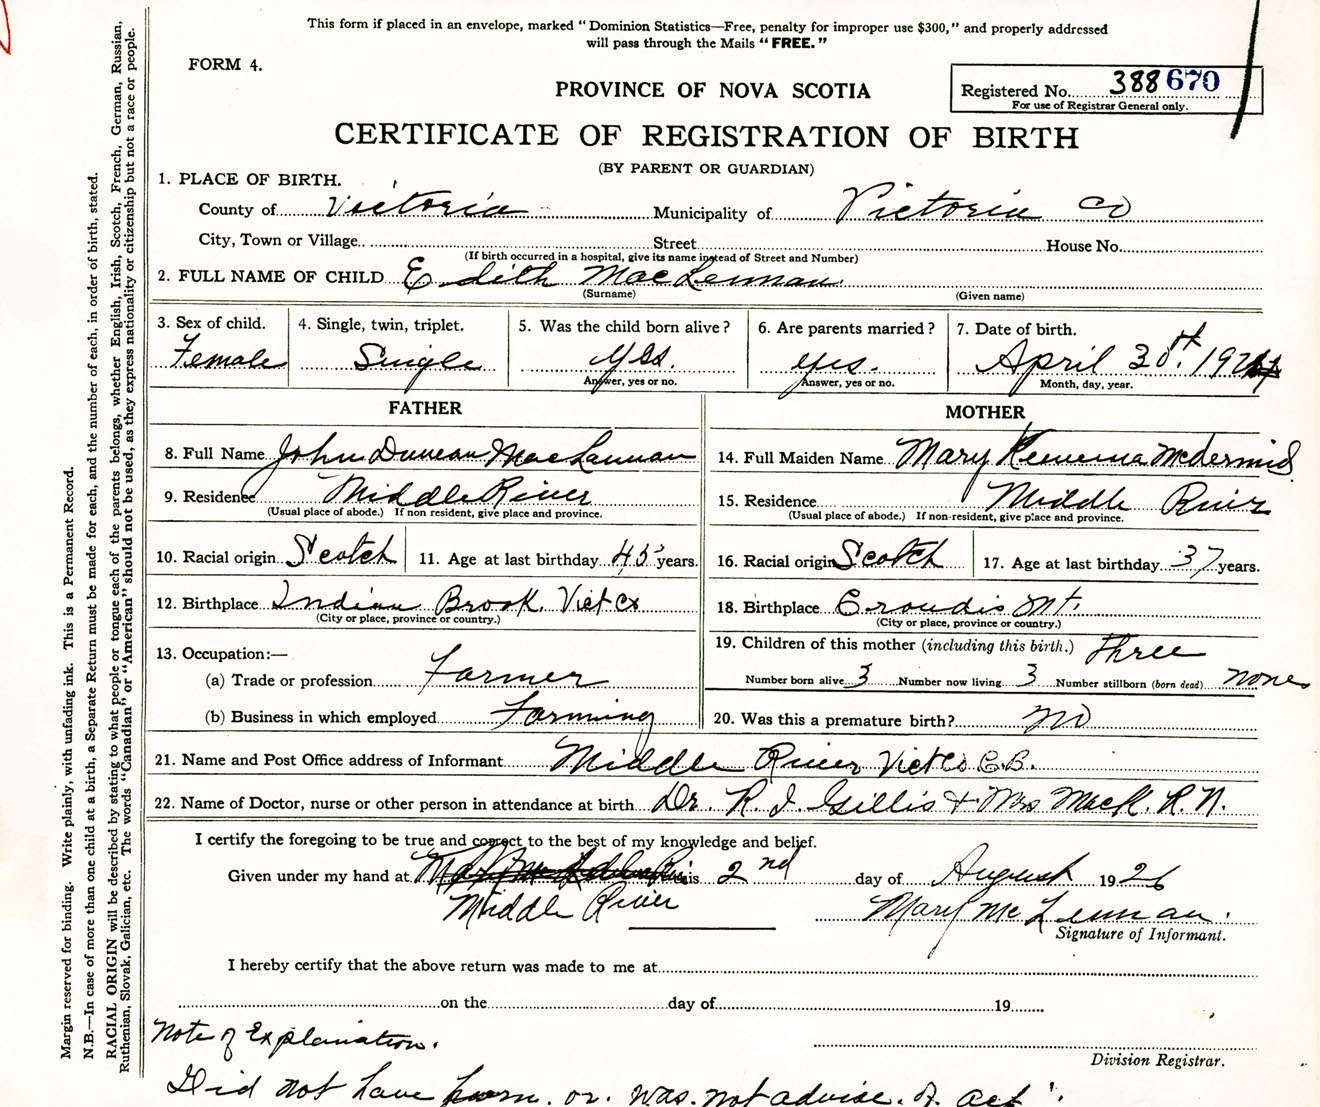 This form if placed in an envelope, marked “Dominion Statistics—Free, penalty for improper use $300,” and properly addressed
will pass through the Mails “FREE.”
FORM 4.
PROVINCE OF NOVA SCOTIA
Registered No. 388 670
For use of Registrar General only.
CERTIFICATE OF REGISTRATION OF BIRTH
(BY PARENT OR GUARDIAN)
1. PLACE OF BIRTH.
County of Victoria Municipality of Victoria Co
City, Town or Village Street House No.
(If birth occurred in a hospital, give its name instead of Street and Number)
2. FULL NAME OF CHILD Edith MacLennan
(Surname) (Given name)
3. Sex of child. 4. Single, twin, triplet. 5. Was the child born alive? 6. Are parents married? 7. Date of birth.
Female Single yes. yes. April 30th. 192
Answer, yes or no. Answer, yes or no. Month, day, year.
FATHER MOTHER
8. Full Name John Duncan MacLennan 14. Full Maiden Name Mary McDermid
9. Residence Middle River 15. Residence Middle River
(Usual place of abode.) If non resident, give place and province. (Usual place of abode.) If non-resident, give place and province.
10. Racial origin Scotch 11. Age at last birthday 45 years. 16. Racial origin Scotch 17. Age at last birthday 37 years.
12. Birthplace Indian Brook. Vict Co 18. Birthplace Mt.
(City or place, province or country.) (City or place, province or country.)
13. Occupation:— 19. Children of this mother (including this birth.) Three
(a) Trade or profession Farmer Number born alive 3 Number now living 3 Number stillborn (born dead) none
(b) Business in which employed Farming 20. Was this a premature birth? no
21. Name and Post Office address of Informant Middle River Vict Co C.B.
22. Name of Doctor, nurse or other person in attendance at birth Dr. R. J. Gillis + Mrs R. N.
I certify the foregoing to be true and correct to the best of my knowledge and belief.
Given under my hand at this 2nd day of August 1926
Middle River Mary McLennan.
Signature of Informant.
I hereby certify that the above return was made to me at
on the day of 19
Note of Explanation.
Division Registrar.
Did not have form. or. was. not advise. of act
Margin reserved for binding. Write plainly, with unfading ink. This is a Permanent Record.
N.B.—In case of more than one child at a birth, a Separate Return must be made for each, and the number of each, in order of birth, stated.
RACIAL ORIGIN will be described by stating to what people or tongue each of the parents belongs, whether English, Irish, Scotch, French, German, Russian,
Ruthenian, Slovak, Galician, etc. The words “Canadian” or “American” should not be used, as they express nationality or citizenship but not a race or people.